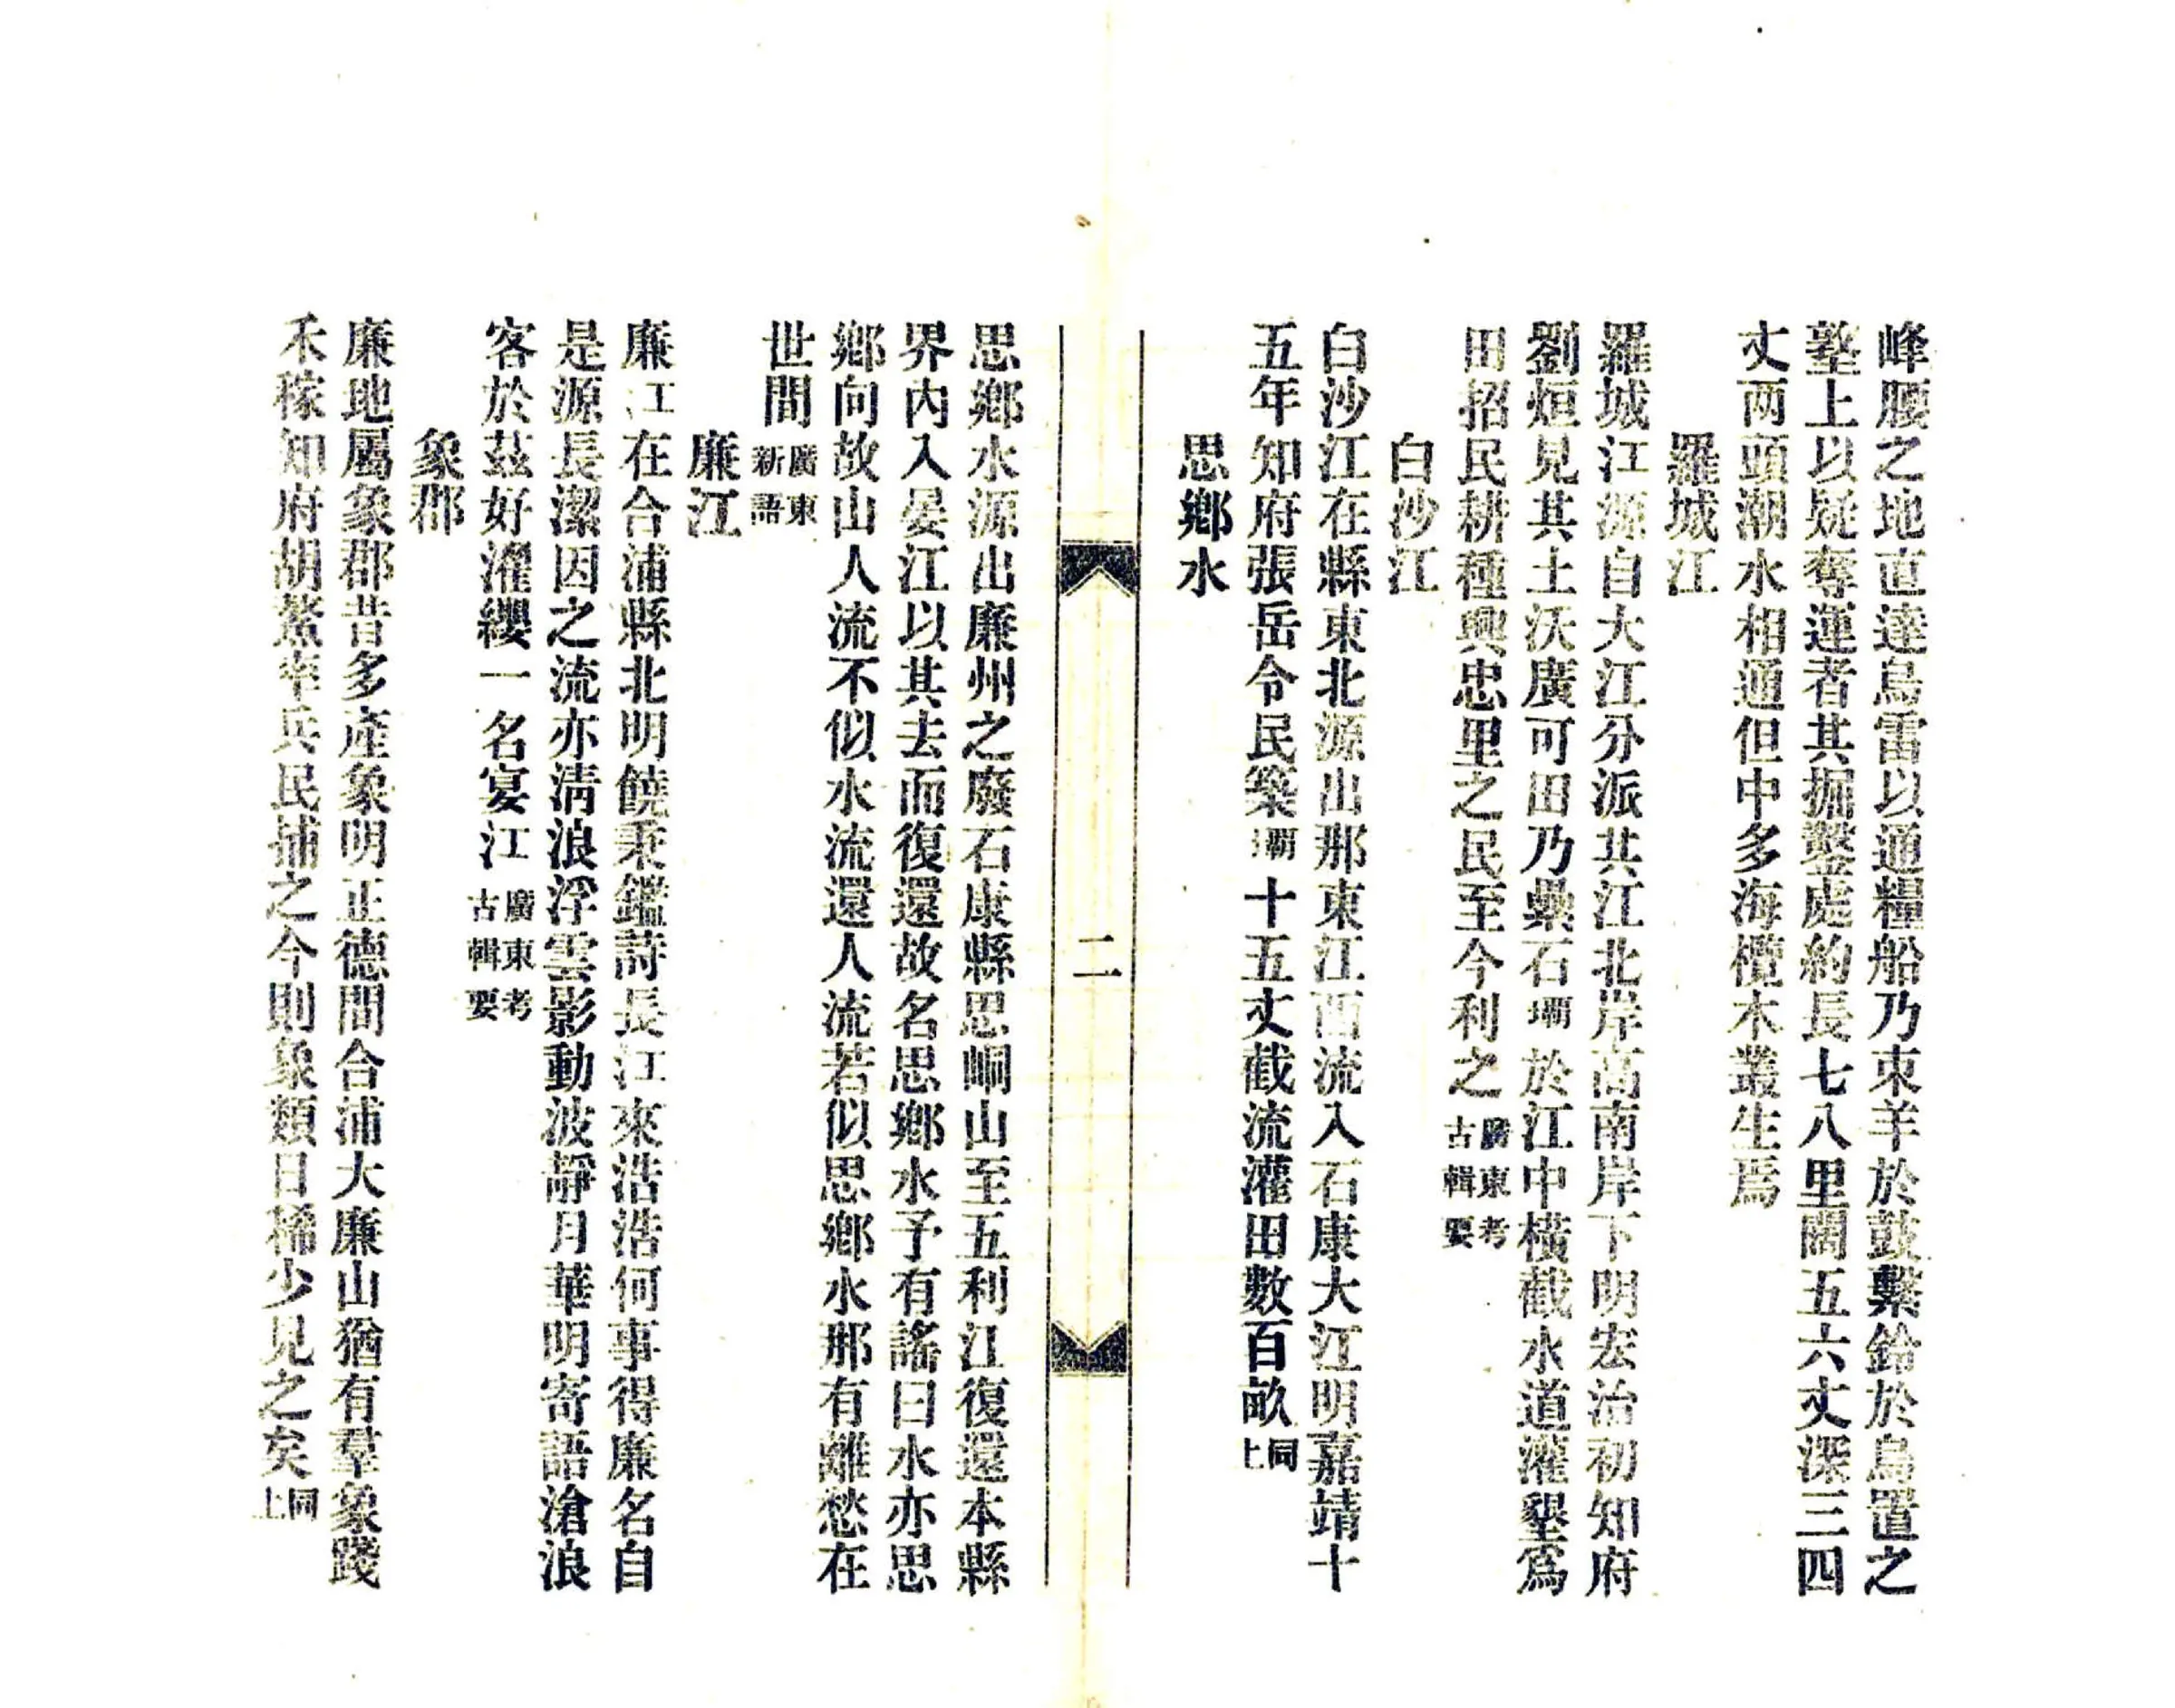 峰腰之地直達烏雷以通糧船乃束羊於鼓繫鈴於鳥置之
塹上以疑奪運者其掘鑿處約長七八里闊五六丈深三四
丈兩頭潮水相通但中多海欖木叢生焉
羅城江
羅城江源自大江分派其江北岸高南岸下明宏治初知府
劉烜見其土沃廣可田乃壘石壩於江中橫截水道灌墾爲
田招民耕種興忠里之民至今利之廣東考古輯要
白沙江
白沙江在縣東北源出那東江西流入石康大江明嘉靖十
五年知府張岳令民築壩十五丈截流灌田數百畝同上
思鄉水
二
思鄉水源出廉州之廢石康縣思峒山至五利江復還本縣
界內入晏江以其去而復還故名思鄉水予有謠曰水亦思
鄉向故山人流不似水流還人流若似思鄉水那有離愁在
世間廣東新語
廉江
廉江在合浦縣北明饒秉鑑詩長江來浩浩何事得廉名自
是源長潔因之流亦清浪浮雲影動波靜月華明寄語滄浪
客於茲好濯纓一名宴江廣東考古輯要
象郡
廉地屬象郡昔多產象明正德間合浦大廉山猶有羣象踐
禾稼知府胡鰲率兵民捕之今則象類日稀少見之矣同上